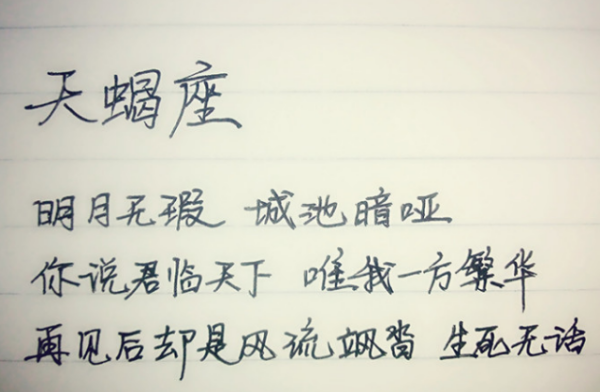 天蝎座
明月无瑕 城池暗哑
你说君临天下 唯我一方繁华
再见后却是风流飒沓 生死无话